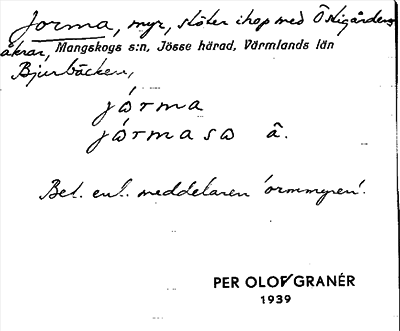 Jorma, myr, stöter ihop med Östigårdens
åkrar, Mangskogs s:n, Jösse härad, Värmlands län
Bjurbäcken,
jòrma
jòrmasω â.
Bet. enl. meddelaren 'ormmyren'.
PER OLOF GRANÉR
1939